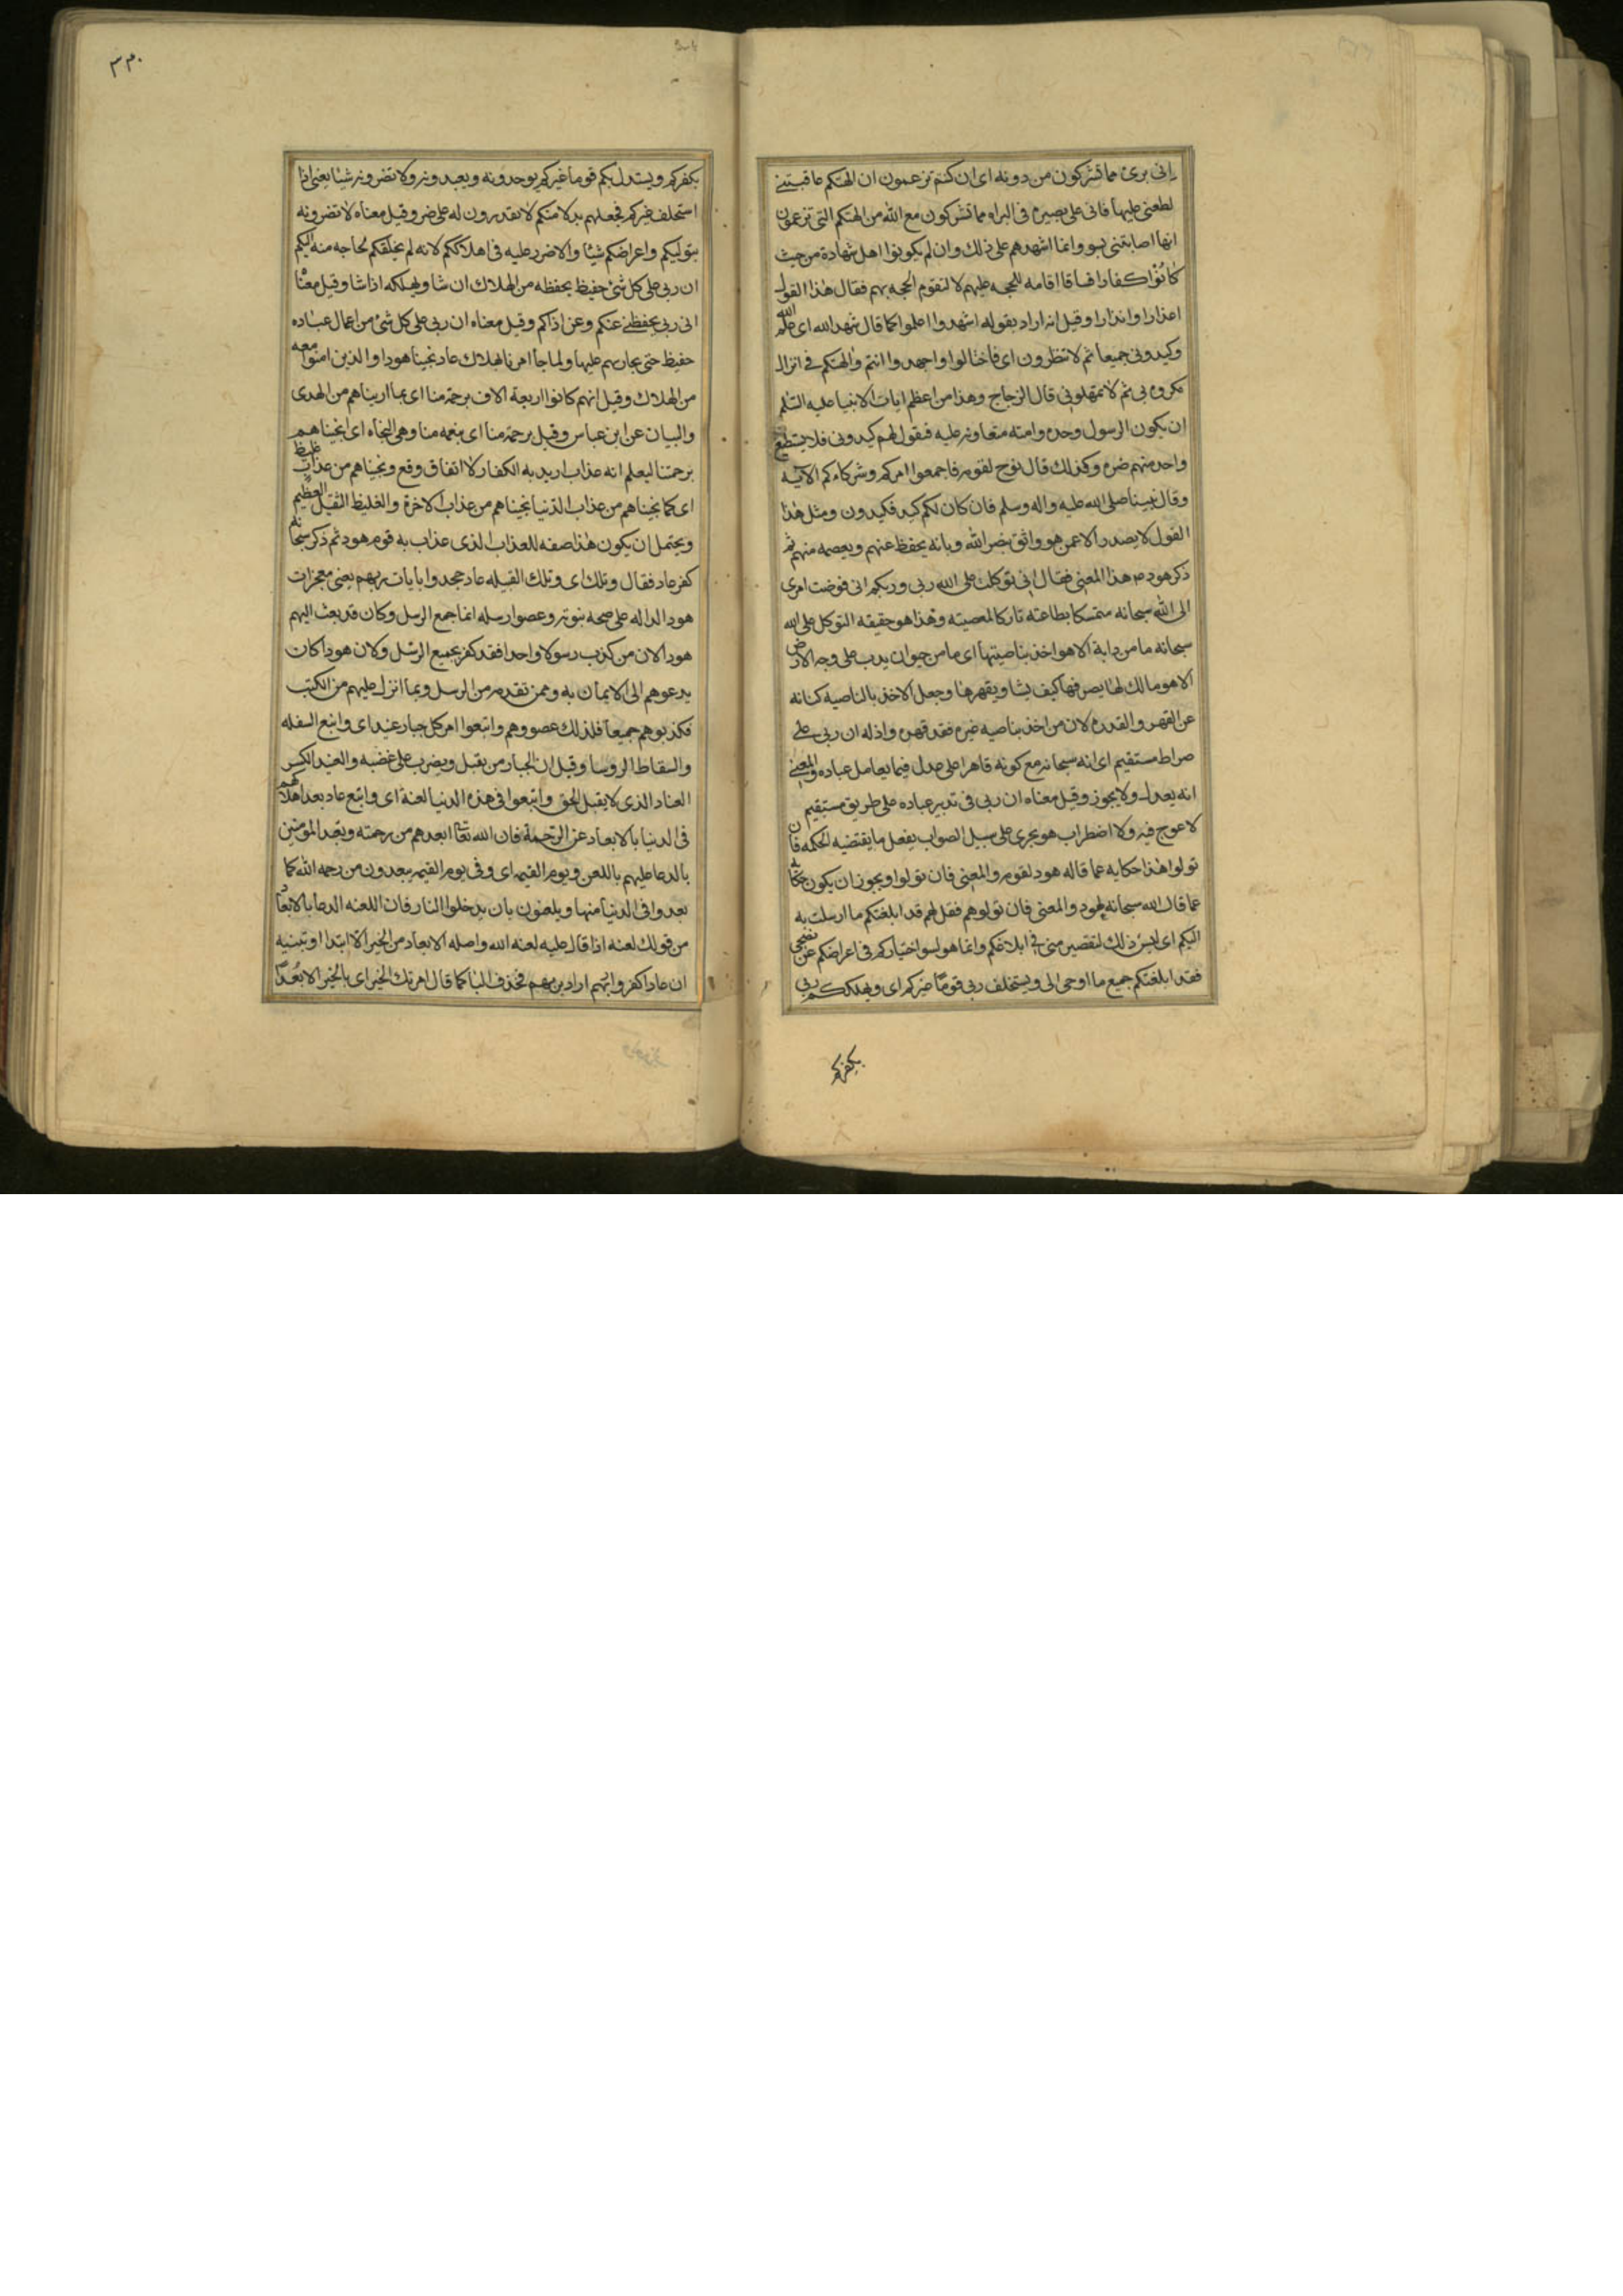 اني برئ مما تشركون من دونه اى ان كنتم تزعمون ان الهتكم عاقبتنى
لطعنى عليها فانى على بصيره فى البراه مما تشركون مع الله من الهتكم التى تزعمون
انها اصابتنى بسو وانما اشهدهم على ذلك وان لم يكونوا اهل شهادة من حيث
كانوا كفارا فساقا اقامه للحجه عليهم لا لتقوم الحجه بهم فقال هذا القول
اعذارا وانذارا وقيل انه اراد بقوله اشهدوا اعلموا كما قال شهد الله اى علم الله
وكيدونى جميعا ثم لا تنظرون اى فاحتالوا واجهدوا انتم والهتكم فى انزال
مكروه بى ثم لا تمهلونى قال الزجاج وهذا من اعظم ايات الانبيا عليه السلم
ان يكون الرسول وحده وامته متعاونه عليه فيقول لهم كيدونى فلا يستطيع
واحد منهم ضره وكذلك قال نوح لقومه فاجمعوا امركم وشركاءكم الآية
وقال نبينا صلى الله عليه واله وسلم فان كان لكم كيد فكيدون ومثل هذا
القول لا يصدر الا عمن هو واثق بنصر الله وبانه يحفظ عنهم ويعصمه منهم ثم
ذكر هود هذا المعنى فقال انى توكلت على الله ربى وربكم انى فوضت امرى
الى الله سبحانه متمسكا بطاعته تاركا لمعصيته وهذا هو حقيقه التوكل على الله
سبحانه ما من دابة الا هو اخذ بناصيتها اى ما من حيوان يدب على وجه الارض
الا هو مالك لها يصرفها كيف يشا ويقهرها وجعل الاخذ بالناصيه كنايه
عن القهر والقدره لان من اخذ بناصيه غيره فقد قهره واذله ان ربى على
صراط مستقيم اى انه سبحانه مع كونه قاهرا على عدل فيما يعامل عباده والمعنى
انه يعدل ولا يجوز وقيل معناه ان ربى فى تدبير عباده على طريق مستقيم
لا عوج فيه ولا اضطراب هو يجرى على سبيل الصواب يفعل ما يقتضيه الحكمه فان
تولوا هذا حكايه عما قاله هود لقومه والمعنى فان تولوا ويجوز ان يكون حكاية
عما قال الله سبحانه لهود والمعنى فان تولوهم فقل لهم قد ابلغتكم ما ارسلت به
اليكم اى ليس ذلك لتقصير منى فى ابلاغكم وانما هو لسو اختياركم فى اعراضكم عن نصحى
فقد ابلغتكم جميع ما اوحى الى ويستخلف ربى قوما غيركم اى ويهلككم ربى
بكفركم
٣٣٠
بكفركم ويستدل بكم قوما غيركم يوحدونه ويعبدونه ولا تضرونه شيئا يعنى اذا
استخلف غيركم فجعلهم بدلا منكم لا تقدرون له على ضر وقيل معناه لا تضرونه
بتوليكم واعراضكم شيئا ولا ضرر عليه فى اهلاككم لانه لم يخلقكم لحاجه منه اليكم
ان ربى على كل شئ حفيظ يحفظه من الهلاك ان شا ويهلكه اذا شا وقيل معناه
انى ربى يحفظنى عنكم وعن اذاكم وقيل معناه ان ربى على كل شئ من اعمال عباده
حفيظ حتى يجازيهم عليها ولما جا امرنا بهلاك عاد نجينا هودا والذين امنوا معه
من الهلاك وقيل انهم كانوا اربعة الاف برحمة منا اى بما اريناهم من الهدى
والبيان عن ابن عباس وقيل برحمة منا اى بنعمه منا وهى النجاه اى انجيناهم
برحمتنا ليعلم انه عذاب اريد به الكفار لا اتفاق وقع ونجيناهم من عذاب غليظ
اى كما نجيناهم من عذاب الدنيا نجيناهم من عذاب الاخرة والغليظ الثقيل العظيم
ويحتمل ان يكون هذا صفه للعذاب الذى عذاب به قوم هود ثم ذكر سبحانه
كفر عاد فقال وتلك اى وتلك القبيله عاد جحدوا بايات ربهم يعنى معجزات
هود الداله على صحه نبوته وعصوا رسله انما جمع الرسل وكان قد بعث اليهم
هود لان من كذب رسولا واحدا فقد كفر بجميع الرسل ولان هودا كان
يدعوهم الى الايمان به وممن تقدمه من الرسل وبما انزل عليهم من الكتب
فكذبوهم جميعا فلذلك عصووهم واتبعوا امر كل جبار عنيد اى واتبع السفله
والسقاط الروسا وقيل ان الجبار من يقتل ويضرب على غضبه والعنيد الكثير
العناد الذى لا يقبل الحق واتبعوا فى هذه الدنيا لعنة اى واتبع عاد بعد اهلاكهم
فى الدنيا بالابعاد عن الرحمة فان الله تعا ابعدهم من رحمته وتعبد المؤمنين
بالدعا عليهم باللعن ويوم القيمه اى وفى يوم القيمه يبعدون من رحمه الله كما
بعدوا فى الدنيا منها ويلعنون بان يدخلوا النار فان اللعنه الدعا بالابعاد
من قولك لعنه اذا قال عليه لعنه الله واصله الابعاد من الخير الا ابتدا وتنبيه
ان عادا كفروا بهم اراد بربهم فحذف البا كما قال امرتك الخير اى بالخير الا بعدا